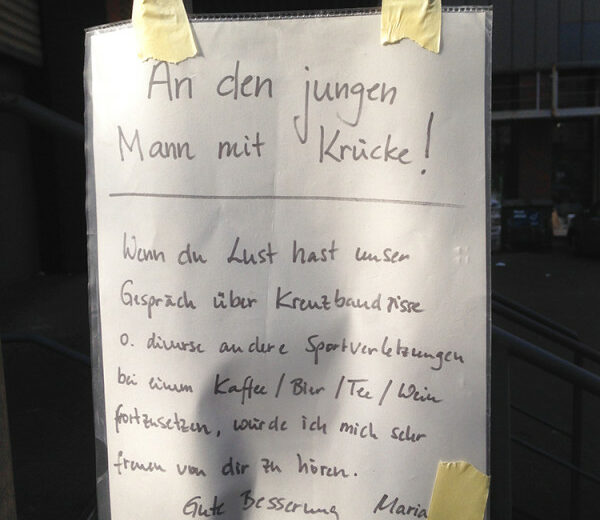 An den jungen
Mann mit Krücke!
Wenn du Lust hast unser
Gespräch über Kreuzbandrisse
o. diverse andere Sportverletzungen
bei einem Kaffee/Bier/Tee/Wein
fortzusetzen, würde ich mich sehr
freuen von dir zu hören.
Gute Besserung Maria